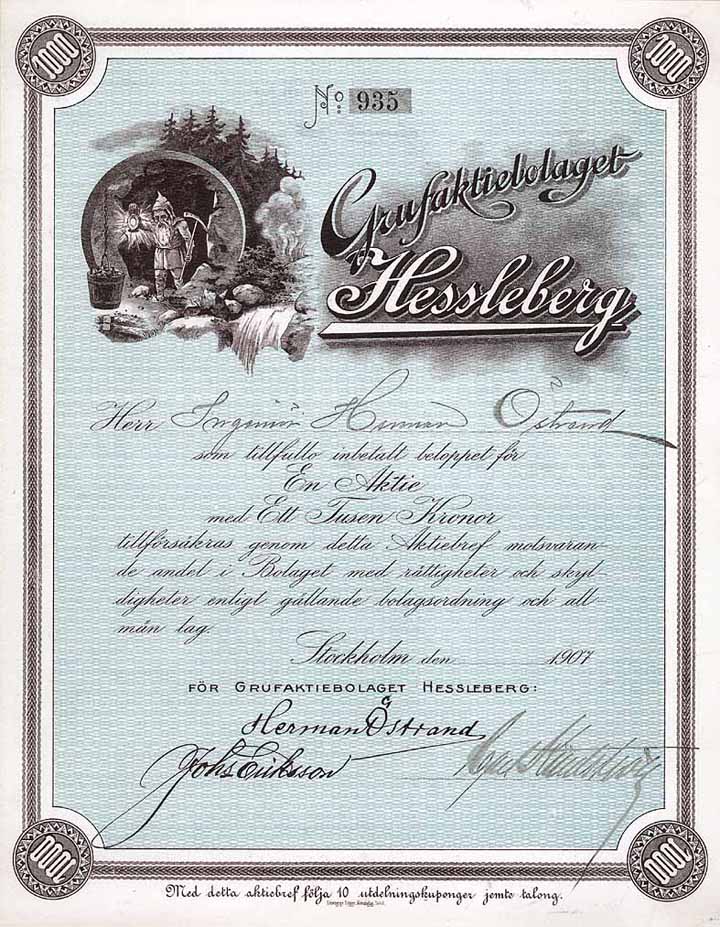 1000 1000
No: 935
Grufaktiebolaget
Hessleberg
Herr Ingeniör Herman Östrand
som tillfullo inbetalt beloppet för
En Aktie
med Ett Tusen Kronor
tillförsäkras genom detta Aktiebref motsvaran-
de andel i Bolaget med rättigheter och skyl
digheter enligt gällande bolagsordning och all
män lag.
Stockholm den 1907
FÖR GRUFAKTIEBOLAGET HESSLEBERG:
Herman Östrand
Johs Eriksson
1000 1000
Med detta aktiebref följa 10 utdelningskuponger jemte talong.